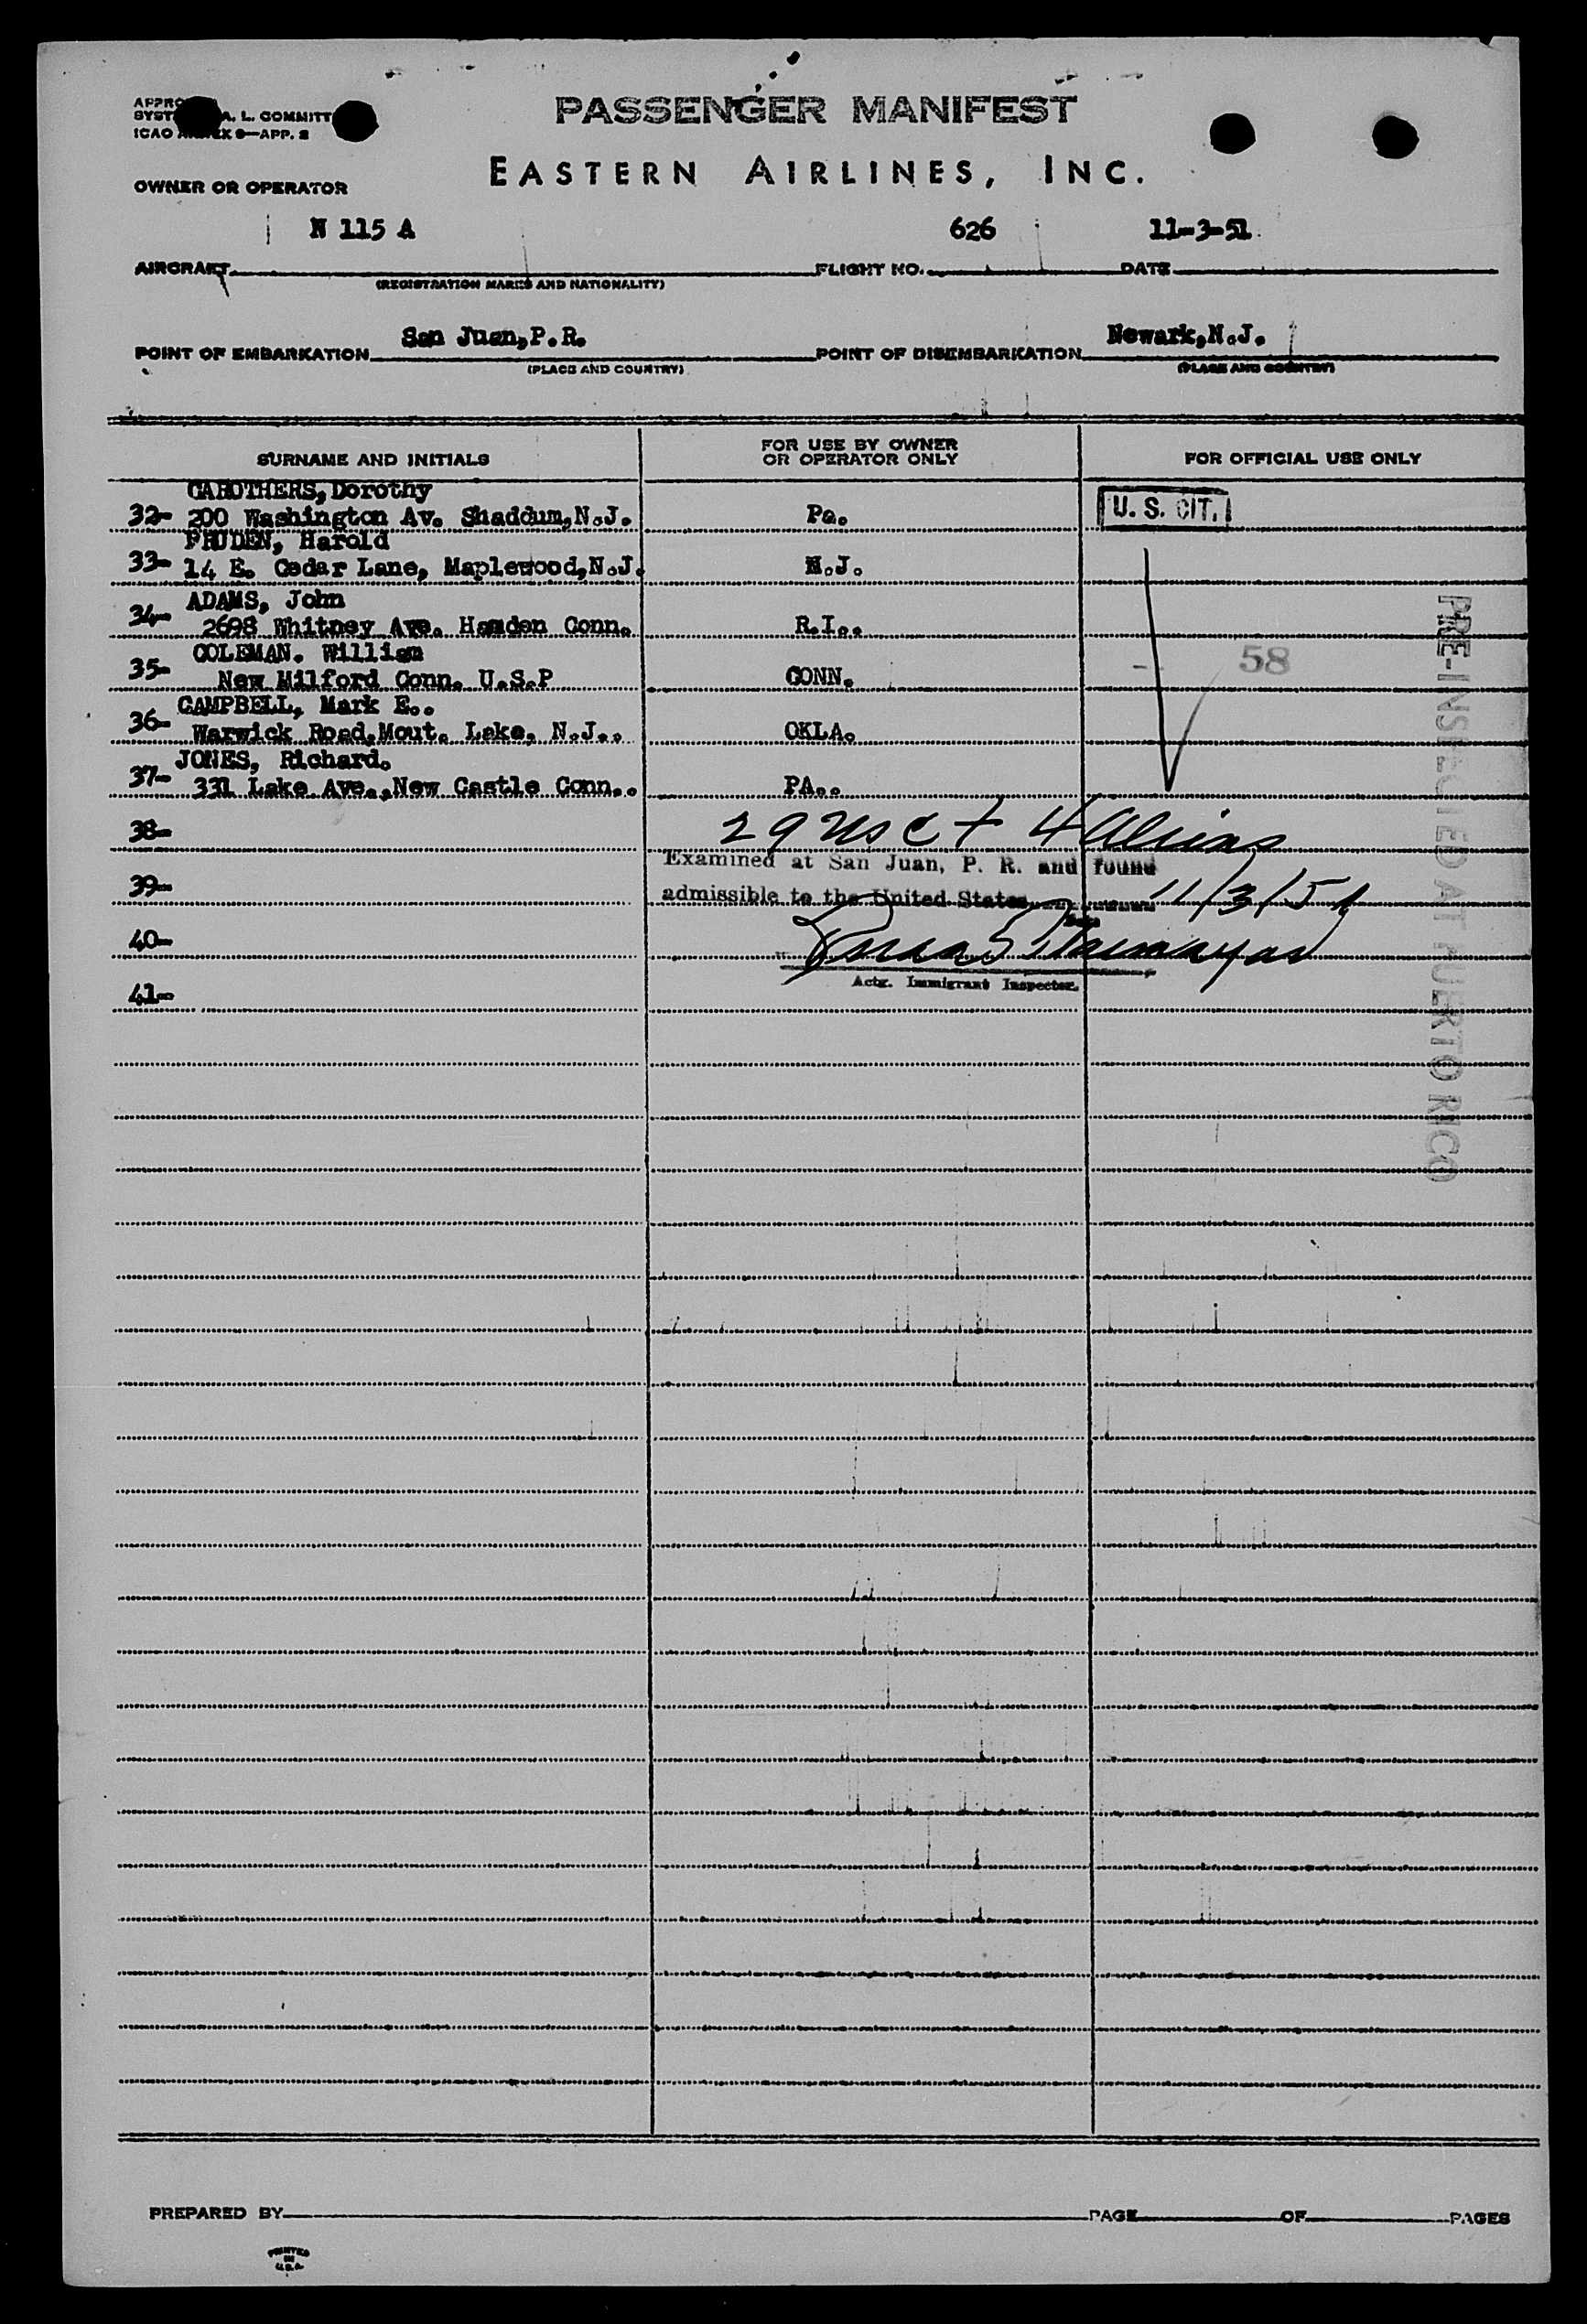 PASSENGER MANIFEST
A. L. COMMITT
ICAO 9—APP. 2
EASTERN AIRLINES, INC.
OWNER OR OPERATOR
N 115 A 626 11-3-51
AIRCRAFT FLIGHT NO. DATE
(REGISTRATION MARKS AND NATIONALITY)
San Juan,P.R. Newark,N.J.
POINT OF EMBARKATION POINT OF DISEMBARKATION
(PLACE AND COUNTRY) (PLACE AND COUNTRY)
SURNAME AND INITIALS FOR USE BY OWNER OR OPERATOR ONLY FOR OFFICIAL USE ONLY
CAROTHERS,Dorothy
32- 200 Washington Av. Shaddum,N.J. Pa. U. S. CIT.
PRUDEN, Harold
33- 14 E. Cedar Lane, Maplewood,N.J. N.J.
ADAMS, John
34- 2698 Whitney Ave. Hamden Conn. R.I..
COLEMAN. William 58
35- New Milford Conn. U.S.P CONN.
CAMPBELL, Mark E..
36- Warwick Road,Mout. Lake, N.J.. OKLA.
JONES, Richard.
37- 331 Lake Ave.,New Castle Conn.. PA..
38- 29 USC + 4 Aliens
Examined at San Juan, P. R. and found
39- admissible to the United States 11/3/51
40-
Actg. Immigrant Inspector.
41-
PRE-INSPECTED AT PUERTO RICO
PREPARED BY PAGE OF PAGES
PRINTED
IN
U.S.A.